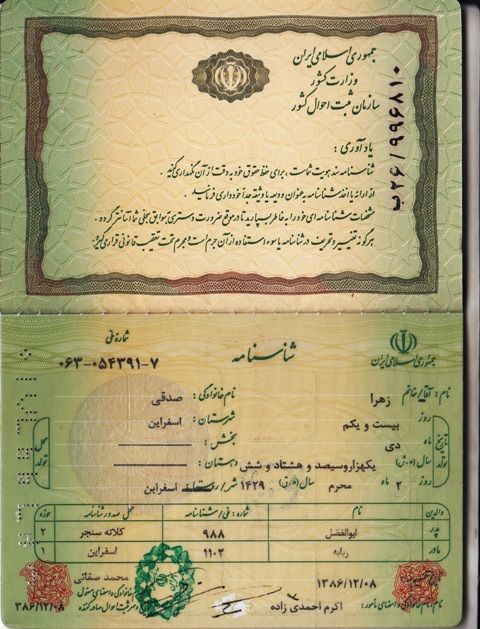 جمهوری اسلامی ایران
وزارت کشور
سازمان ثبت احوال کشور
ب۲۶/۹۹۶۸۱۰
یادآوری :
شناسنامه سند هویت شماست ، برای حفظ حقوق خود به دقت از آن نگهداری کنید .
از ارائه یا اخذ شناسنامه به عنوان ودیعه یا وثیقه جداً خودداری فرمائید .
مشخصات شناسنامه ای خود را به خاطر بسپارید تا در موقع ضرورت دسترسی به سوابق سجلی شما آسانتر گردد .
هرگونه تغییر و تحریف در شناسنامه یا سوء استفاده از آن جرم است و مجرم تحت تعقیب قانونی قرار می گیرد
جمهوری اسلامی ایران
شناسنامه
شماره ملی
۰۶۳-۰۵۴۳۹۱-۷
نام : آقا/خانم زهرا
نام خانوادگی : صدقی
تاریخ تولد
روز بیست و یکم
ماه دی
سال (ه.ش) یکهزار و سیصد و هشتاد و شش
روز ۲ ماه محرم سال (ه.ق) ۱۴۲۹
محل تولد
شهرستان : اسفراین
بخش :
دهستان :
شهر/روستا اسفراین
والدین نام شماره : ملی/شناسنامه محل صدور شناسنامه حوزه
پدر ابوالفضل ۹۸۸ کلاته سنجر ۲
مادر ربابه ۱۱۰۲ اسفراین ۱
۱۳۸۶/۱۲/۰۸
نام خانوادگی و امضای مأمور : اکرم احمدی زاده
محمد صفائی
۳۸۶/۱۲/۰۸